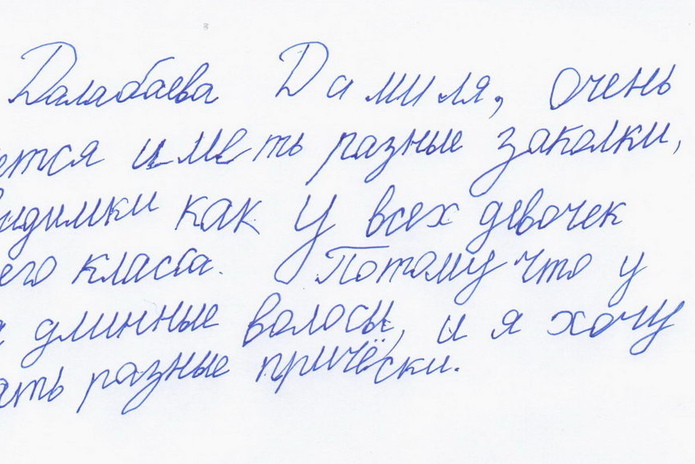 Далабаева Дамиля, очень
ется иметь разные заколки,
видимки как у всех девочек
его класса. Потому что у
длинные волосы, и я хочу
ать разные причёски.